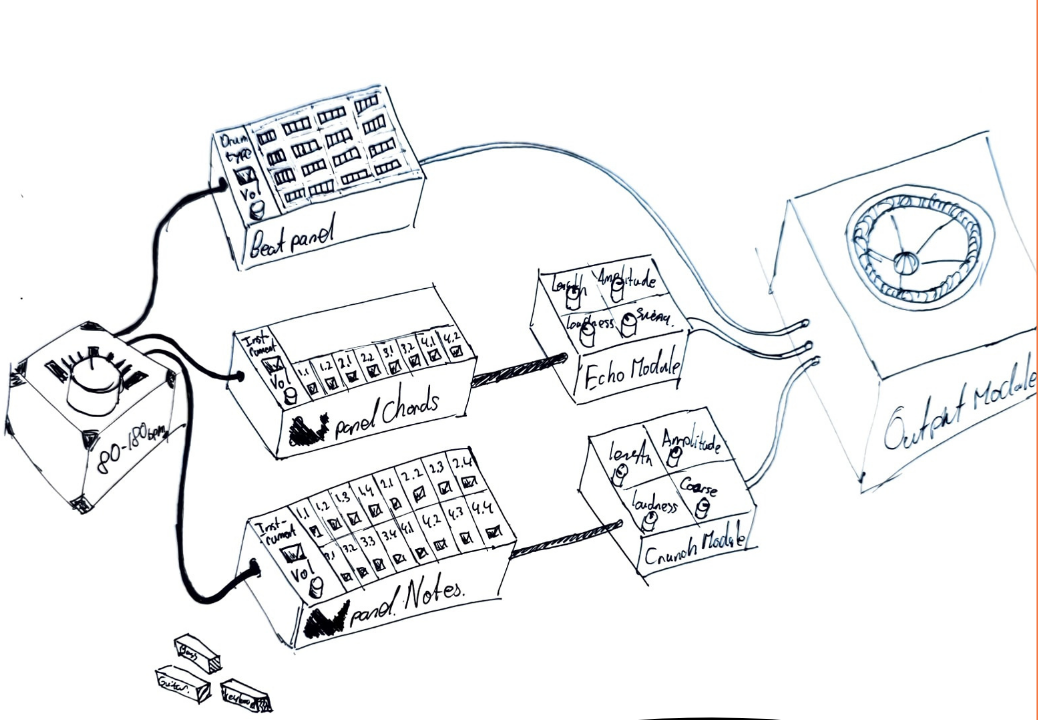 Drum
type
Vol
Beat panel
80-180bpm
Inst-
rument
Vol
1.1 1.2 2.1 2.2 3.1 3.2 4.1 4.2
panel Chords
Length Amplitude
loudness
Echo Module
Output Module
Inst-
rument
Vol
1.1 1.2 1.3 1.4 2.1 2.2 2.3 2.4
3.1 3.2 3.3 3.4 4.1 4.2 4.3 4.4
panel. Notes.
Length Amplitude
loudness Coarse
Crunch Module
Bass
Guitar.